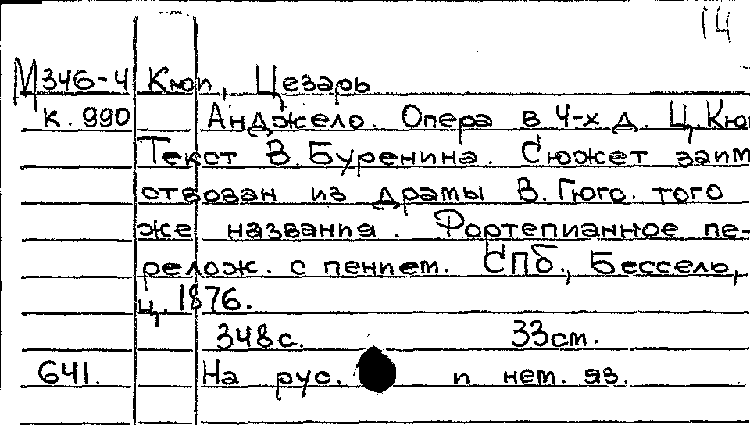 14
М346-4 Кюи, Цезарь
к. 990 Анджело. Опера в 4-х д. Ц. Кюи
Текст В. Буренина. Сюжет заим
ствован из драмы В. Гюго того
же названия. Фортепианное пе-
релож. с пением. СПб., Бессель,
ц. 1876.
348 с. 33 см.
641. На рус. и нем. яз.